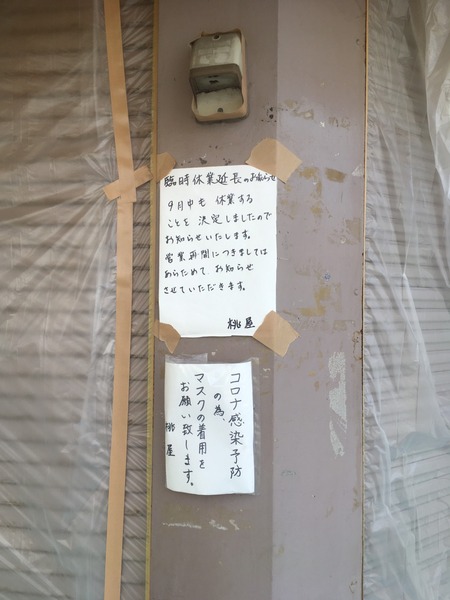 臨時休業延長のお知らせ
9月中も 休業する
ことを 決定しましたので
お知らせいたします。
営業再開につきましては
あらためて お知らせ
させていただきます。
桃屋
コロナ感染予防
の為、
マスクの着用を
お願い致します。
桃屋